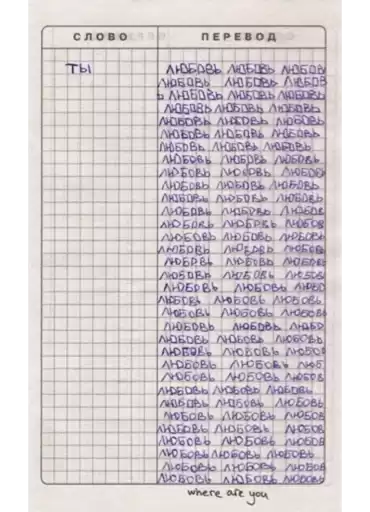 СЛОВО ПЕРЕВОД
ТЫ ЛЮБОВЬ ЛЮБОВЬ ЛЮБОВ
ЛЮБОВЬ ЛЮБОВЬ ЛЮБОВ
Ь ЛЮБОВЬ ЛЮБОВЬ ЛЮБОВЬ
ЛЮБОВЬ ЛЮБОВЬ ЛЮБОВЬ
ЛЮБОВЬ ЛЮБОВЬ ЛЮБОВЬ
ЛЮБОВЬ ЛЮБОВЬ ЛЮБОВЬ
ЛЮБОВЬ ЛЮБОВЬ ЛЮБОВЬ
ЛЮБОВЬ ЛЮБОВЬ ЛЮБОВЬ
ЛЮБОВЬ ЛЮБОВЬ ЛЮБОВЬ
ЛЮБОВЬ ЛЮБОВЬ ЛЮБОВЬ
ЛЮБОВЬ ЛЮБОВЬ ЛЮБОВЬ
ЛЮБОВЬ ЛЮБОВЬ ЛЮБОВ
ЛЮБОВЬ ЛЮБОВЬ ЛЮБОВ
ЛЮБОВЬ ЛЮБОВЬ ЛЮБОВЬ
ЛЮБОВЬ ЛЮБОВЬ ЛЮБОВЬ
ЛЮБОВЬ ЛЮБОВЬ ЛЮБОВ
ЛЮБОВЬ ЛЮБОВЬ ЛЮБОВ
ЛЮБОВЬ ЛЮБОВЬ ЛЮБО
ЛЮБОВЬ ЛЮБОВЬ ЛЮБОВЬ
ЛЮБОВЬ ЛЮБОВЬ ЛЮБОВЬ
ЛЮБОВЬ ЛЮБОВЬ ЛЮБО
ЛЮБОВЬ ЛЮБОВЬ ЛЮБОВЬ
ЛЮБОВЬ ЛЮБОВЬ ЛЮБО
ЛЮБОВЬ ЛЮБОВЬ ЛЮБ
ЛЮБОВЬ ЛЮБОВЬ ЛЮБОВ
ЛЮБОВЬ ЛЮБОВЬ ЛЮБОВЬ
ЛЮБОВЬ ЛЮБОВЬ ЛЮБОВЬ
ЛЮБОВЬ ЛЮБОВЬ ЛЮБОВ
ЛЮБОВЬ ЛЮБОВЬ ЛЮБОВЬ
ЛЮБОВЬ ЛЮБОВЬ ЛЮБОВ
ЛЮБОВЬ ЛЮБОВЬ ЛЮБОВЬ
ЛЮБОВЬ ЛЮБОВЬ ЛЮБОВ
ЛЮБОВЬ ЛЮБОВЬ ЛЮБОВЬ
where are you